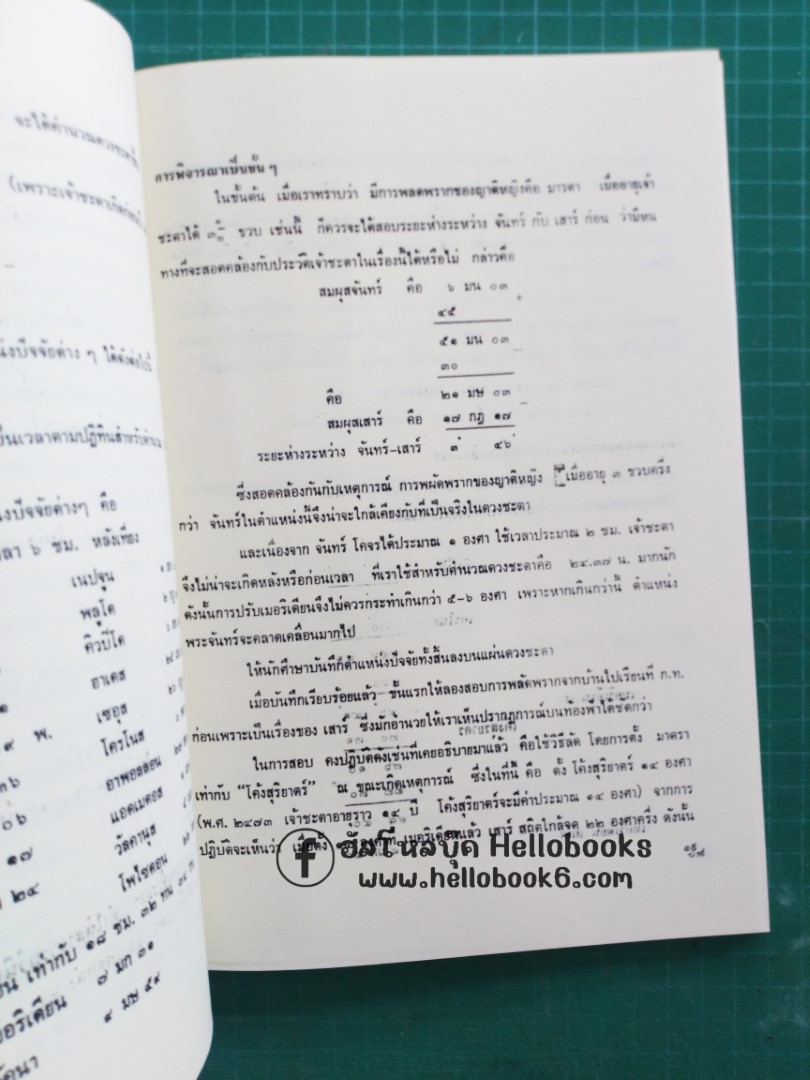 จะได้คำนวณดวงชะตา
(เพราะเจ้าชะตาเกิดก่อน
ปัจจัยต่าง ๆ ได้ดังต่อไปนี้
เป็นเวลาตามปฏิทินสำหรับ
ปัจจัยต่างๆ คือ
เวลา ๖ ชม. หลังเที่ยง
เนปจูน
พลูโต
คิวปิโด
ฮาเดส
๙ พ. เซอุส
โครโนส
อาพอลลอน
แอดเมตอส
๑๗ วัลคานุส
๒๔ โพไซดอน
เท่ากับ ๑๘ ชม. ๓๒
๗ มก ๓๑
๙ มษ ๕๙
การพิจารณาเป็นขั้น ๆ
ในขั้นต้น เมื่อเราทราบว่า มีการพลัดพรากของญาติหญิงคือ มารดา เมื่ออายุเจ้า
ชะตาได้ ๓ ๑/๒ ขวบ เช่นนี้ ก็ควรจะได้สอบระยะห่างระหว่าง จันทร์ กับ เสาร์ ก่อน ว่ามีหน
ทางที่จะสอดคล้องกับประวัติเจ้าชะตาในเรื่องนี้ได้หรือไม่ กล่าวคือ
สมผุสจันทร์ คือ ๖ มน ๐๓
+
๔๕
๕๑ มน ๐๓
๓๐ −
คือ ๒๑ มษ ๐๓
สมผุสเสาร์ คือ ๑๗ กฎ ๑๗ −
ระยะห่างระหว่าง จันทร์-เสาร์ ๓ ๔๖
ซึ่งสอดคล้องกันกับเหตุการณ์ การพลัดพรากของญาติหญิง เมื่ออายุ ๓ ขวบครึ่ง
กว่า จันทร์ในตำแหน่งนี้จึงน่าจะใกล้เคียงกับที่เป็นจริงในดวงชะตา
และเนื่องจาก จันทร์ โคจรได้ประมาณ ๑ องศา ใช้เวลาประมาณ ๒ ชม. เจ้าชะตา
จึงไม่น่าจะเกิดหลังหรือก่อนเวลา ที่เราใช้สำหรับคำนวณดวงชะตาคือ ๒๔.๓๗ น. มากนัก
ดังนั้นการปรับเมอริเดียนจึงไม่ควรกระทำเกินกว่า ๕-๖ องศา เพราะหากเกินกว่านี้ ตำแหน่ง
พระจันทร์จะคลาดเคลื่อนมากไป
ให้นักศึกษาบันทึกตำแหน่งปัจจัยทั้งสิ้นลงบนแผ่นดวงชะตา
เมื่อบันทึกเรียบร้อยแล้ว ขั้นแรกให้ลองสอบการพลัดพรากจากบ้านไปเรียนที่ ก.ท.
ก่อนเพราะเป็นเรื่องของ เสาร์ ซึ่งมักอำนวยให้เราเห็นปรากฏการณ์บนท้องฟ้าได้ชัดกว่า
ในการสอบ คงปฏิบัติดังเช่นที่เคยอธิบายมาแล้ว คือใช้วิธีลัด โดยการตั้ง มาตรา
เท่ากับ "โค้งสุริยาตร์" ณ ขณะเกิดเหตุการณ์ ซึ่งในที่นี้ คือ ตั้ง โค้งสุริยาตร์ ๑๔ องศา
(พ.ศ. ๒๔๗๓ เจ้าชะตาอายุราว ๑๔ ปี โค้งสุริยาตร์จะมีค่าประมาณ ๑๔ องศา) จากการ
ปฏิบัติจะเห็นว่า เมื่อตั้ง เมอริเดียนแล้ว เสาร์ สถิตใกล้จุด ๒๒ องศาครึ่ง ดังนั้น
f ฮัลโหลบุ๊ค Hellobooks
www.hellobook6.com